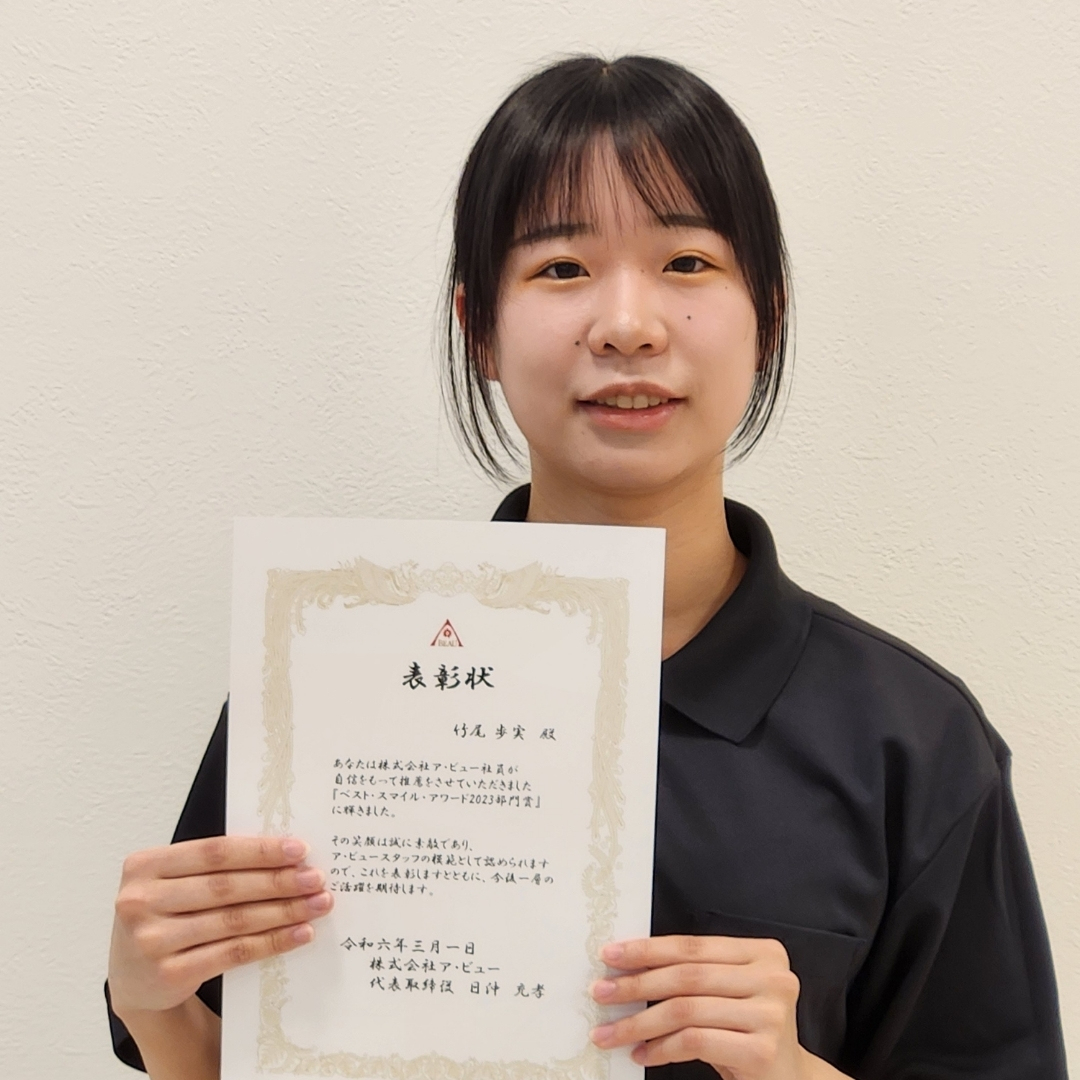 表彰状
竹尾 歩実 殿
あなたは株式会社ア・ビュー社員が
自信をもって推薦をさせていただきました
『ベスト・スマイル・アワード2023部門賞』
に輝きました。
その笑顔は誠に素敵であり、
ア・ビュースタッフの模範として認められます
ので、これを表彰しますとともに、今後一層の
ご活躍を期待します。
令和六年三月一日
株式会社ア・ビュー
代表取締役 日沖 充孝